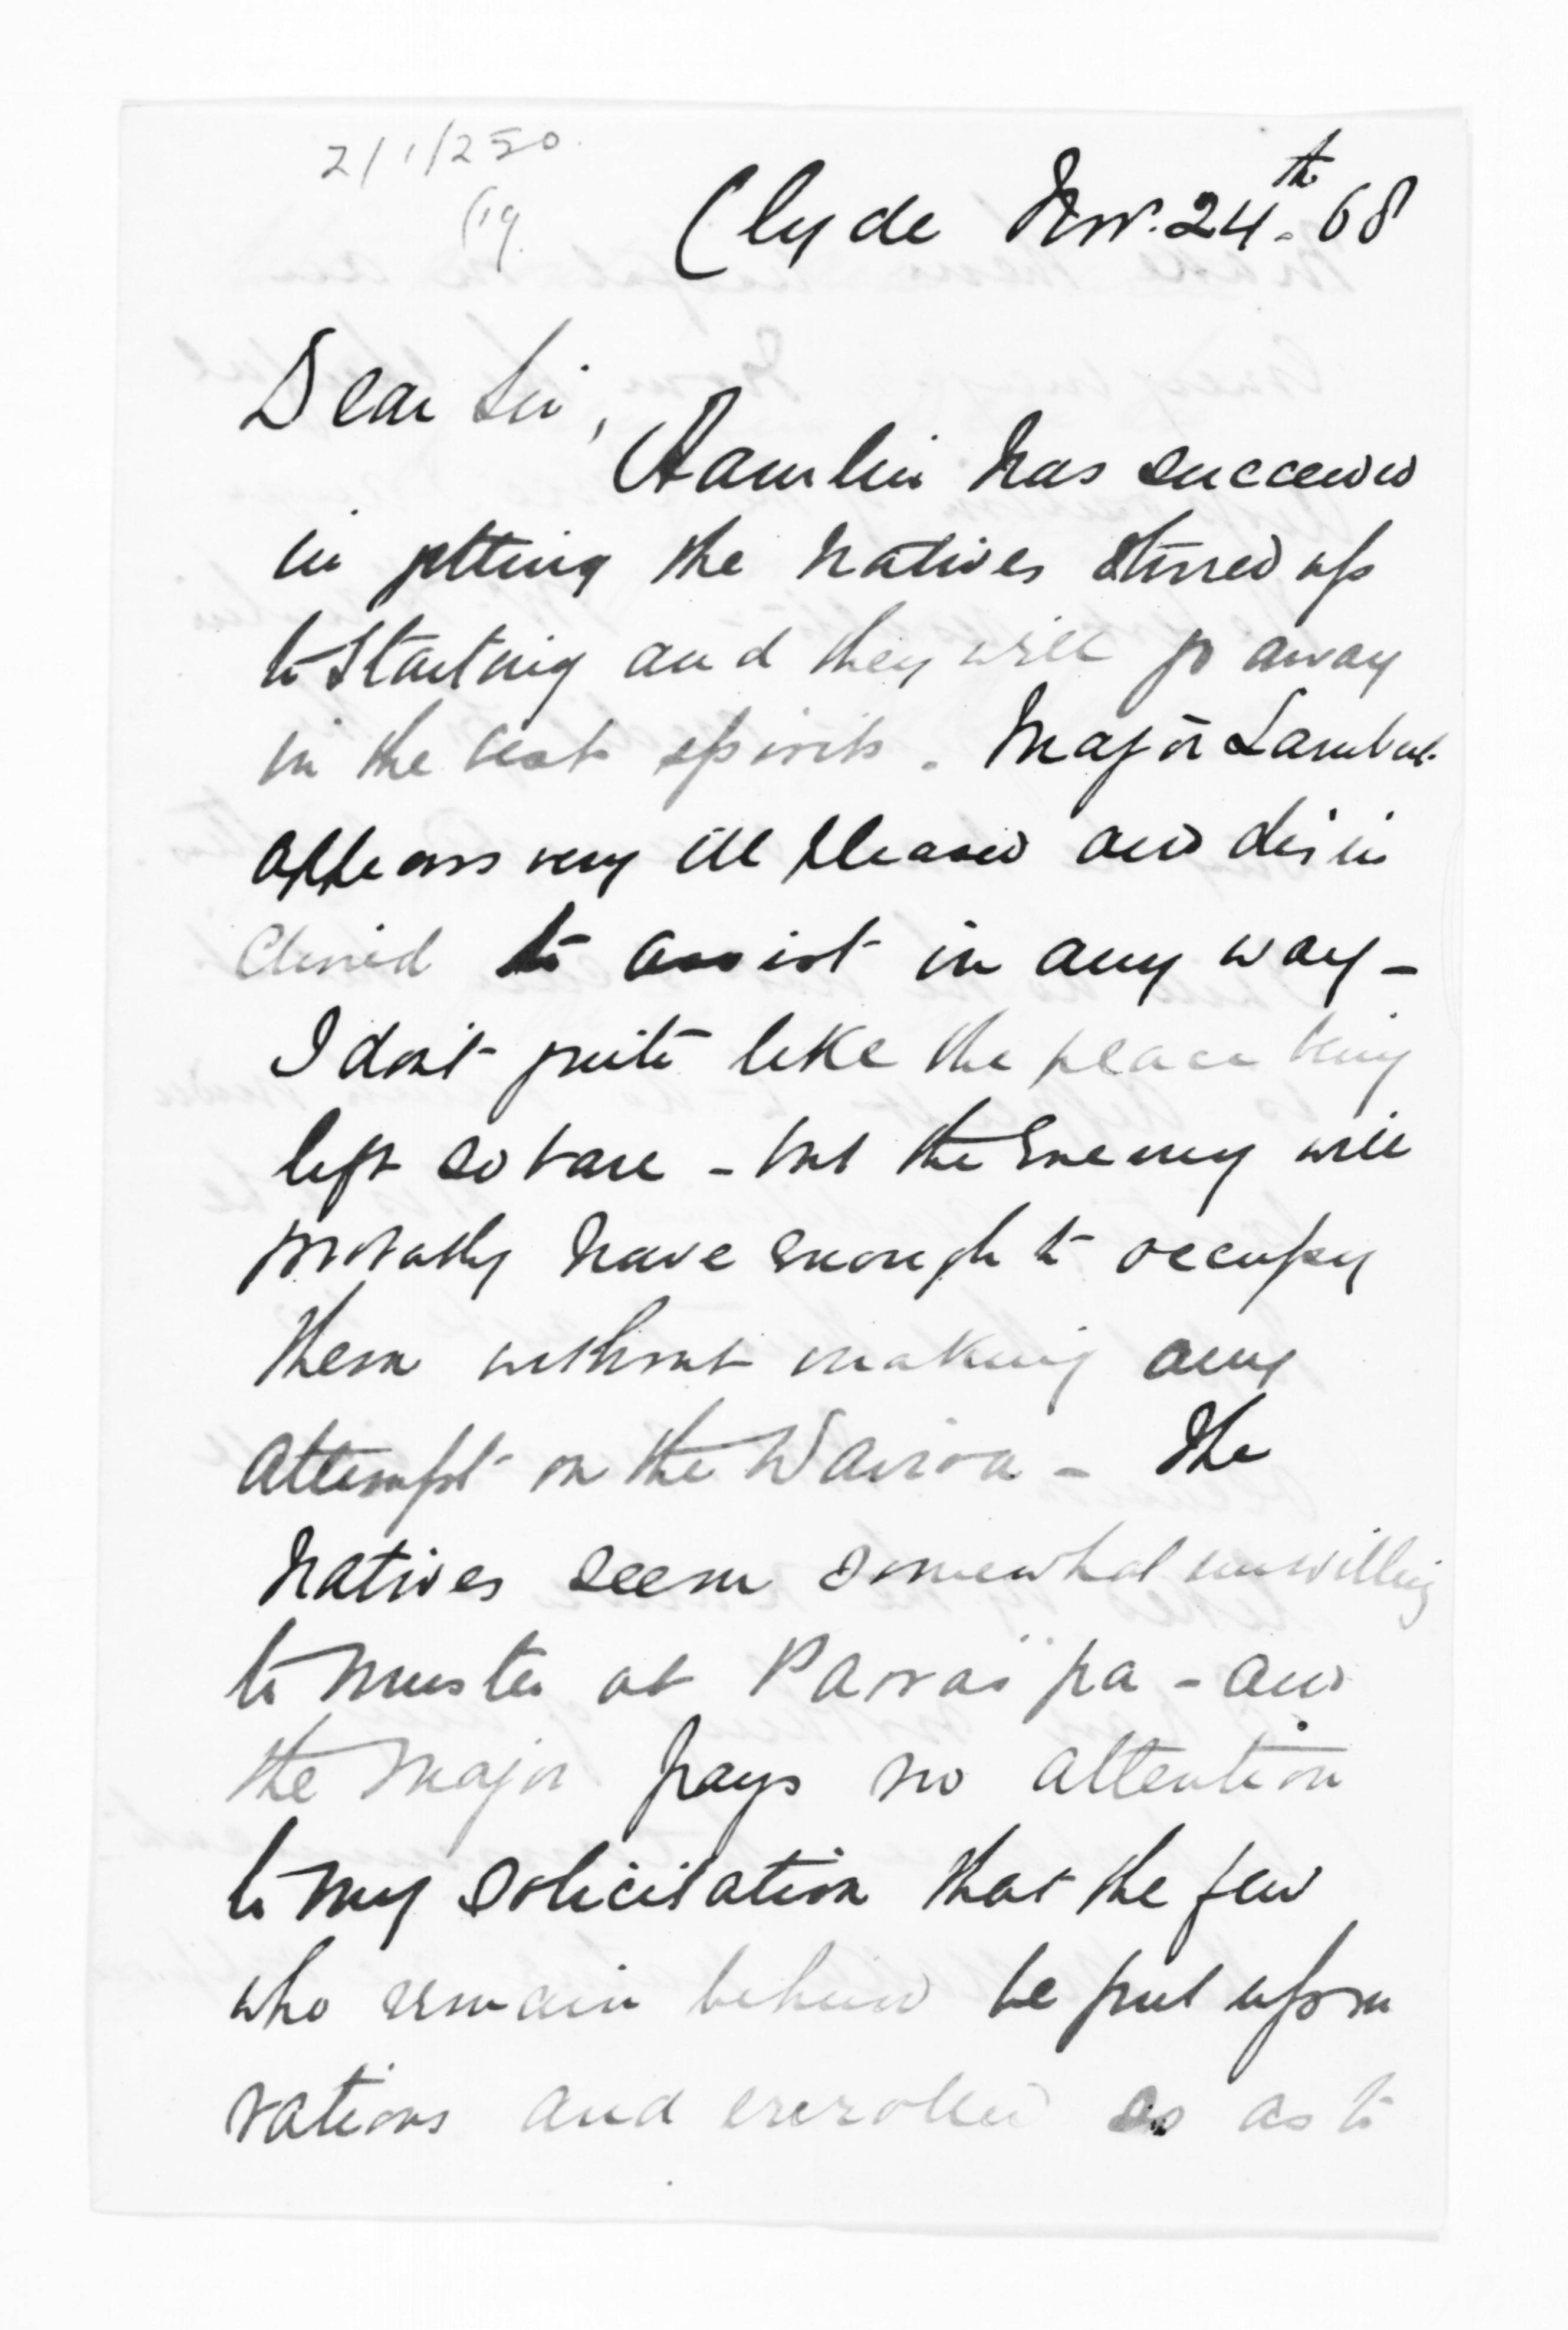 2/1/250
Clyde Nov. 24th. 68
Dear Sir,
Hamlin has succeeded
in getting the Natives stirred up
to starting and they will go away
in the best spirits. Major Lambert
appears very ill pleased and disin
clined to assist in any way -
I don't quite like the place being
left so bare - but the Enemy will
probably have enough to occupy
them without making any
attempt on the Wairoa - The
Natives seem somewhat unwilling
to muster at pa - and
the Major pays no attention
to my solicitation that the few
who remain behind be put upon
rations and enrolled so as to